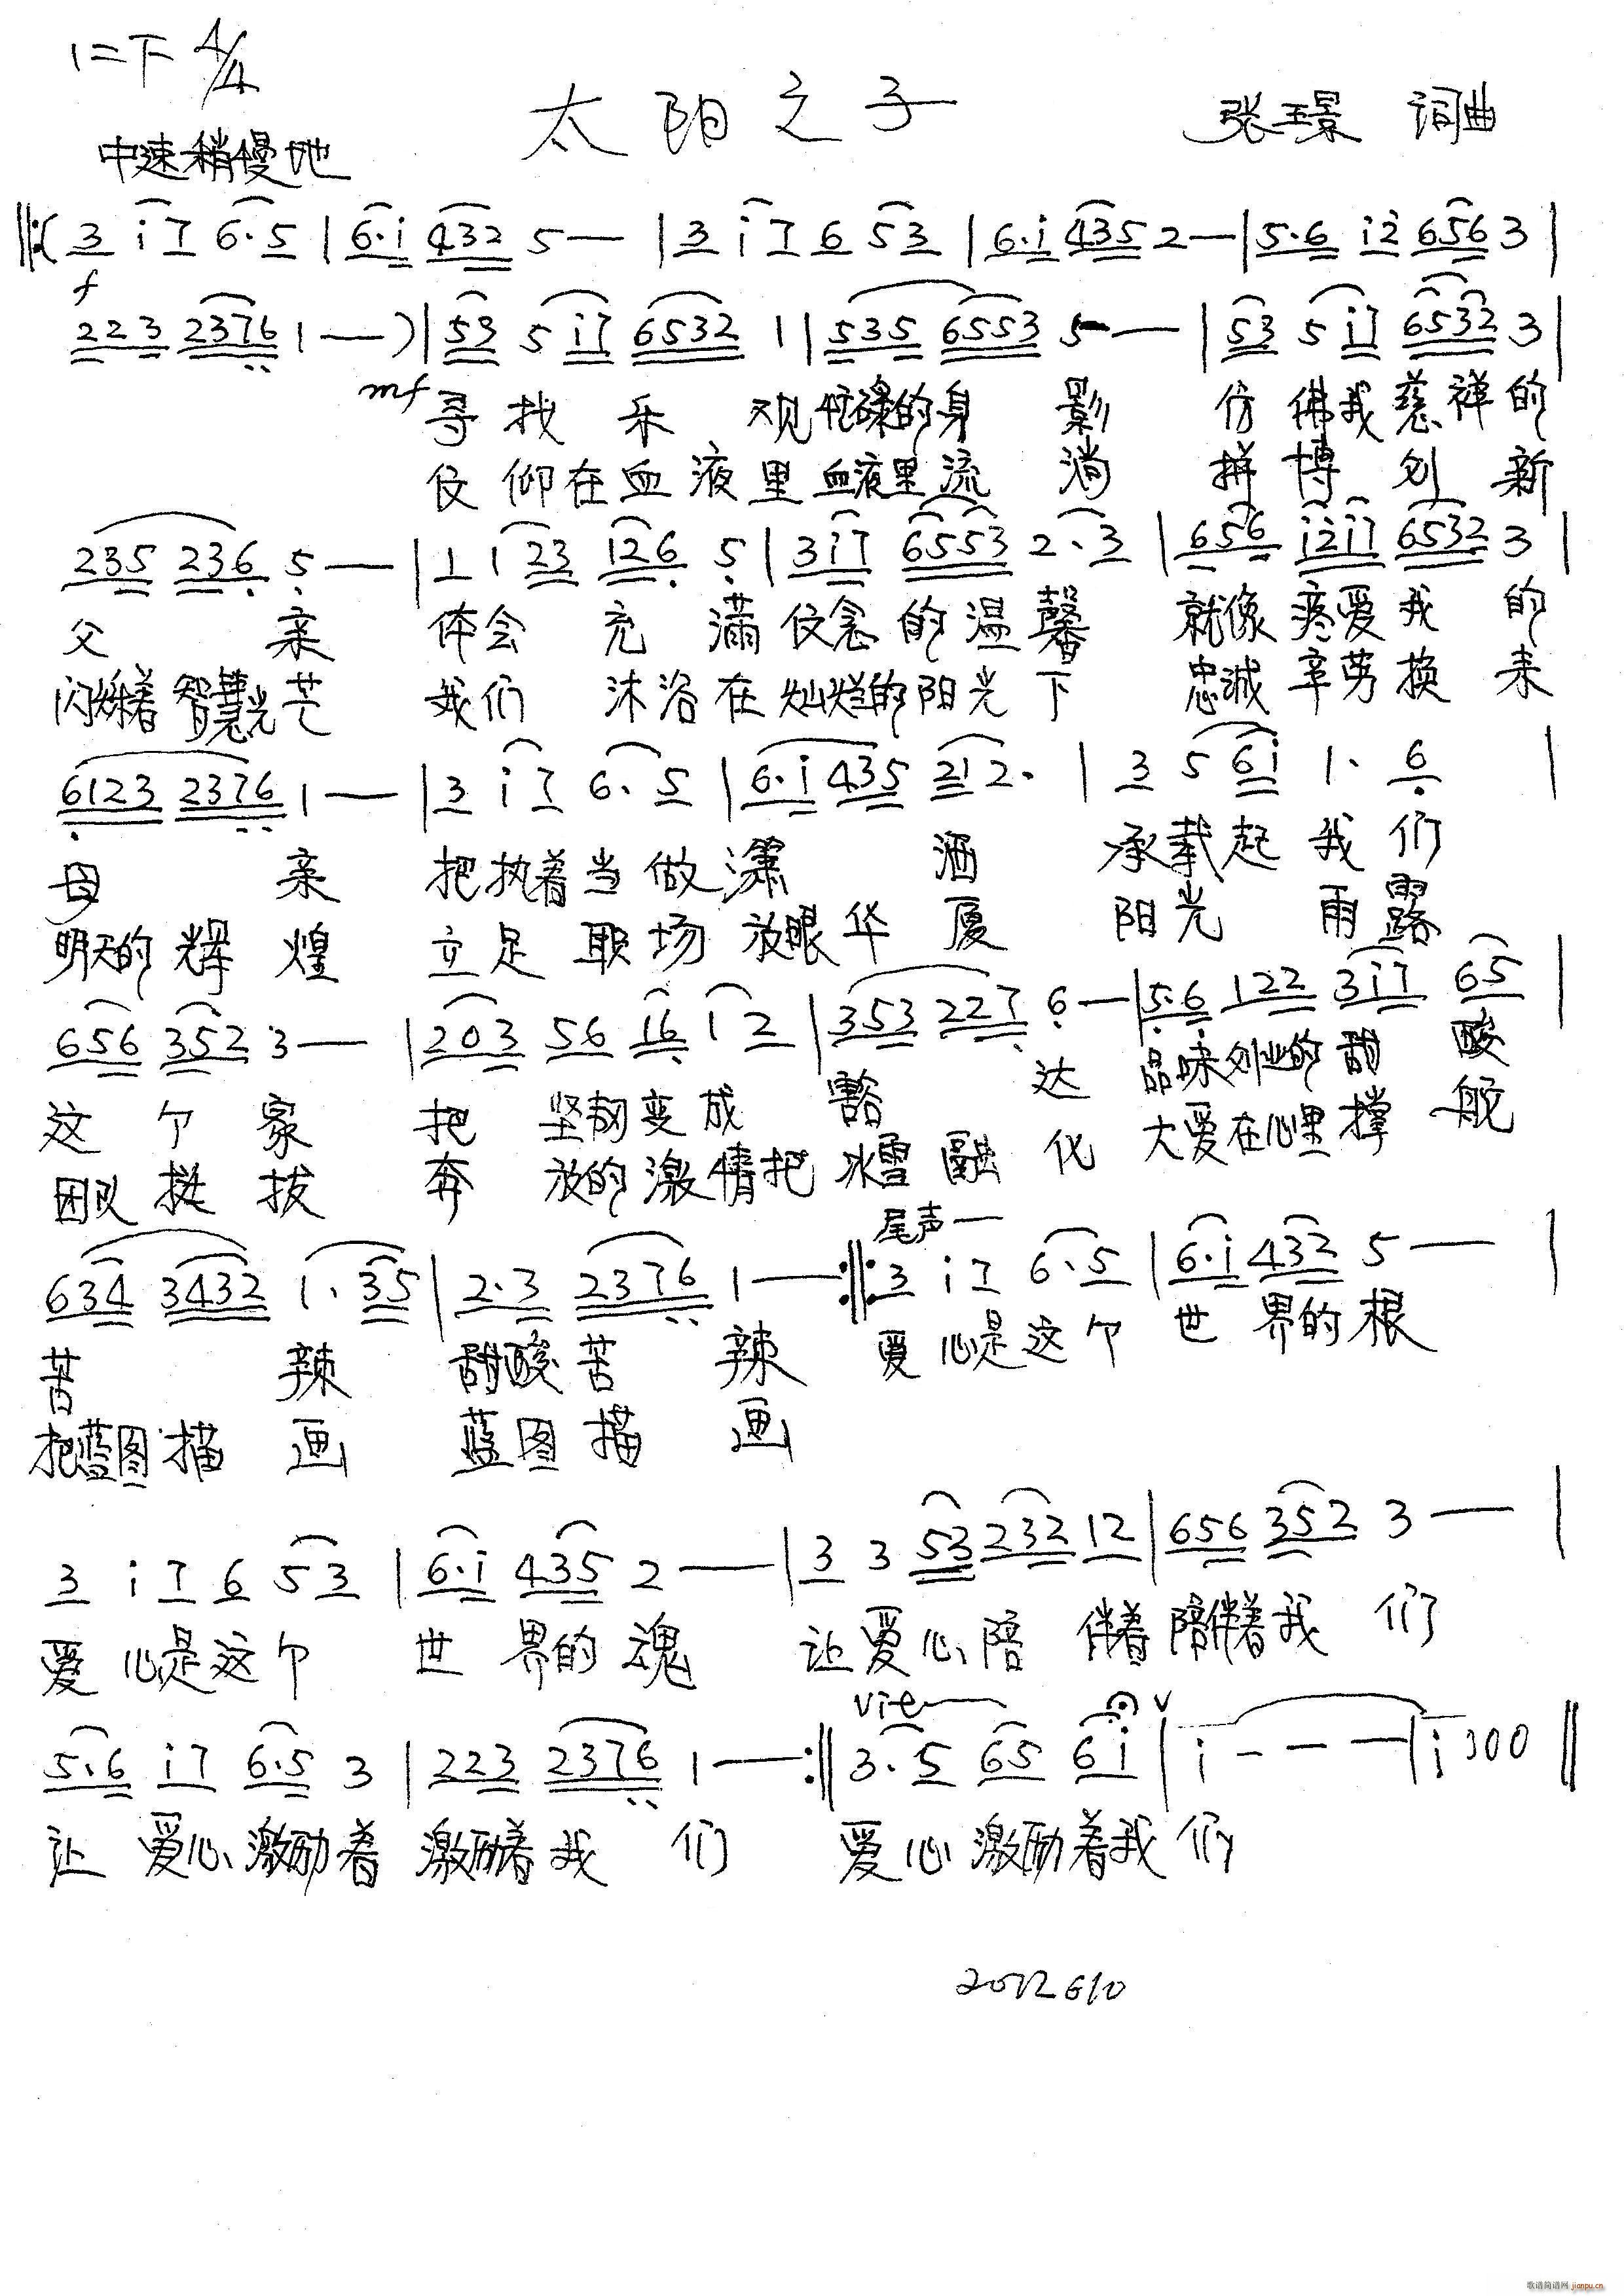 1=F 4/4
太阳之子
张玉景 词曲
中速稍慢地
‖:( 3 i 7 6·5 | 6·i 432 5 — | 3 i 7 6 53 | 6·i 435 2 — | 5·6 i2 656 3 |
f
223 2376 1 — ) | 53 5 i7 6532 1 | 535 6553 5 — — | 53 5 i7 6532 3 |
mf 寻找乐观忙碌的身影 仿佛我慈祥的
信仰在血液里血液里流淌 拼博创新
235 236 5 — | 1 1 23 126 5 | 3i7 6553 2·3 | 656 i2i7 6532 3 |
父亲 体会充满信念的温馨 就像疼爱我的
闪烁着智慧光芒 我们沐浴在灿烂的阳光下 忠诚辛劳换来
6123 2376 1 — | 3 i 7 6·5 | 6·i 435 21 2· | 3 5 6i 1· 6 |
母亲 把执着当做潇洒 承载起我们
明天的辉煌 立足职场放眼华厦 阳光雨露
656 352 3 — | 203 56 16 1 2 | 353 227 6 — | 5·6 122 3i7 65 |
这个家 把坚韧变成豁达 品味创业的甜酸
团队挺拔 奔放的激情把冰雪融化 大爱在心里撑航
尾声一
634 3432 1·35 | 2·3 2376 1 — :‖: 3 i 7 6·5 | 6·i 432 5 — |
苦辣 甜酸苦辣 爱心是这个世界的根
把蓝图描画 蓝图描画
3 i 7 6 53 | 6·i 435 2 — | 3 3 53 232 12 | 656 352 3 — |
爱心是这个世界的魂 让爱心陪伴着陪伴着我们
vit V
5·6 i7 6·5 3 | 223 2376 1 — :‖ 3·5 65 6i | i - - — | i 00 ‖
让爱心激励着激励着我们 爱心激励着我们
2012 6/10
歌谱简谱网 jianpu.cn